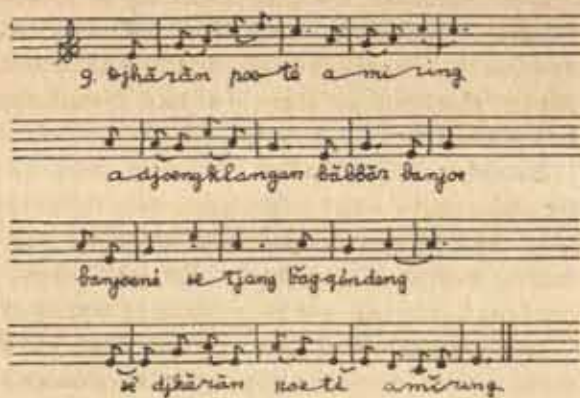 9. Djhârân poeté a mi ring
a djoengklangan bâbbâr banjoe
banjoené se tjang bag-géndeng
sé djhârân poe té amĕring.